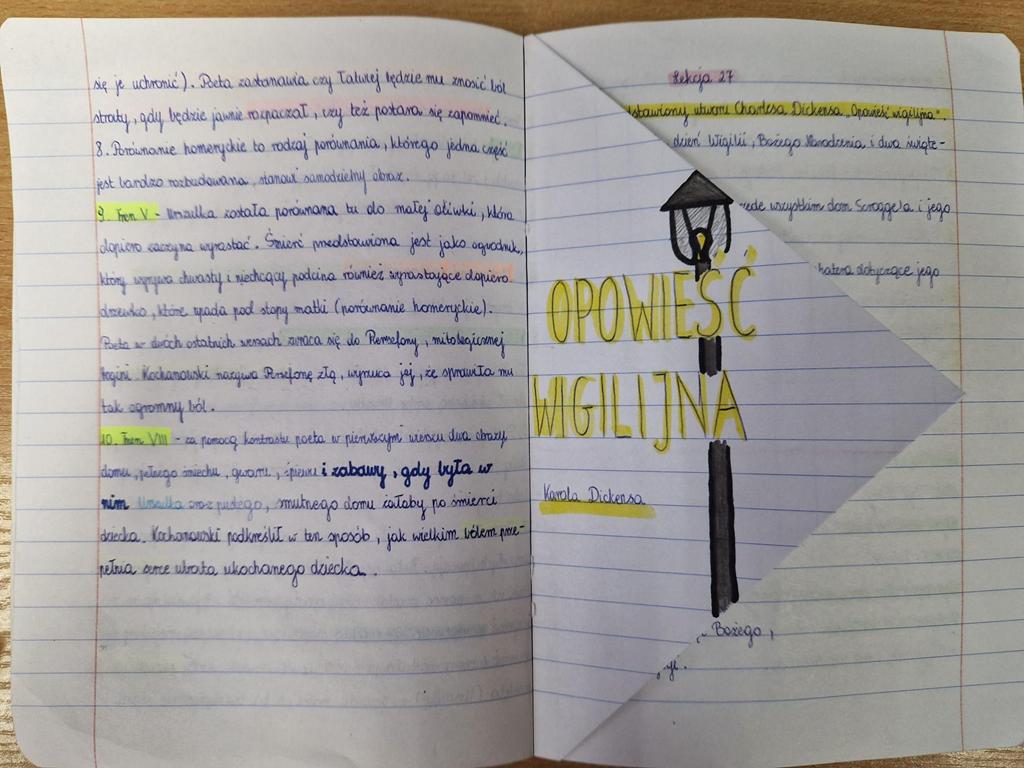 się je uchronić). Poeta zastanawia czy łatwiej będzie mu znosić ból
straty, gdy będzie jawnie rozpaczał, czy też postara się zapomnieć.
8. Porównanie homeryckie to rodzaj porównania, którego jedna część
jest bardzo rozbudowana, stanowi samodzielny obraz.
9. Tren V - Urszulka została porównana tu do małej oliwki, która
dopiero zaczyna wyrastać. Śmierć przedstawiona jest jako ogrodnik,
który wyrywa chwasty i niechcący podcina również wyrastające dopiero
drzewko, które upada pod stopy matki (porównanie homeryckie).
Poeta w dwóch ostatnich wersach zwraca się do Persefony, mitologicznej
bogini. Kochanowski nazywa Persefonę złą, wyrzuca jej, że sprawiła mu
tak ogromny ból.
10. Tren VIII - za pomocą kontrastu poeta w pierwszym wierszu dwa obrazy
domu, pełnego śmiechu, gwaru, śpiewu i zabawy, gdy była w
nim Urszulka oraz pustego, smutnego domu żałoby po śmierci
dziecka. Kochanowski podkreślił w ten sposób, jak wielkim bólem prze-
pełnia serce utrata ukochanego dziecka.
Lekcja 27
dstawiony utworu Charlesa Dickensa „Opowieść wigilijna"
dzień Wigilii, Bożego Narodzenia i dwa święte-
rede wszystkim dom Scrogge'a i jego
hatera dotyczące jego
OPOWIEŚĆ
WIGILIJNA
Karola Dickensa
Bożego,